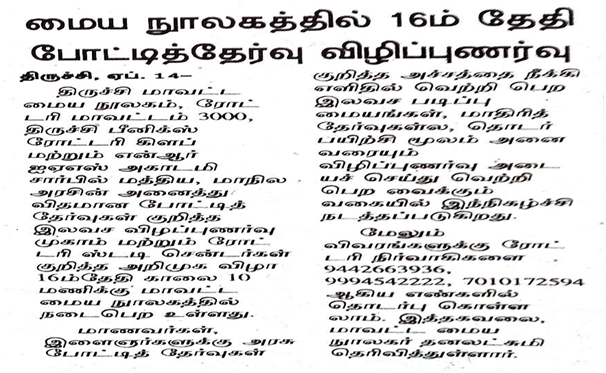 மைய நூலகத்தில் 16ம் தேதி
போட்டித்தேர்வு விழிப்புணர்வு
திருச்சி, ஏப். 14–
திருச்சி மாவட்ட
மைய நூலகம், ரோட்
டரி மாவட்டம் 3000,
திருச்சி பீனிக்ஸ்
ரோட்டரி கிளப்
மற்றும் என்ஆர்
ஐஏஎஸ் அகாடமி
சார்பில் மத்திய, மாநில
அரசின் அனைத்து
விதமான போட்டித்
தேர்வுகள் குறித்த
இலவச விழப்புணர்வு
முகாம் மற்றும் ரோட்
டரி ஸ்டடி சென்டர்கள்
குறித்த அறிமுக விழா
16ம்தேதி காலை 10
மணிக்கு மாவட்ட
மைய நூலகத்தில்
நடைபெற உள்ளது.
மாணவர்கள்,
இளைஞர்களுக்கு அரசு
போட்டித் தேர்வுகள்
குறித்த அச்சத்தை நீக்கி
எளிதில் வெற்றி பெற
இலவச படிப்பு
மையங்கள், மாதிரித்
தேர்வுகள்ல, தொடர்
பயிற்சி மூலம் அனை
வரையும்
விழிப்புணர்வு அடை
யச் செய்து வெற்றி
பெற வைக்கும்
வகையில் இந்நிகழ்ச்சி
நடத்தப்படுகிறது.
மேலும்
விவரங்களுக்கு ரோட்
டரி நிர்வாகிகளை
9442663936,
9994542222, 7010172594
ஆகிய எண்களில்
தொடர்பு கொள்ள
லாம். இத்தகவலை,
மாவட்ட மைய
நூலகர் தனலட்சுமி
தெரிவித்துள்ளார்.